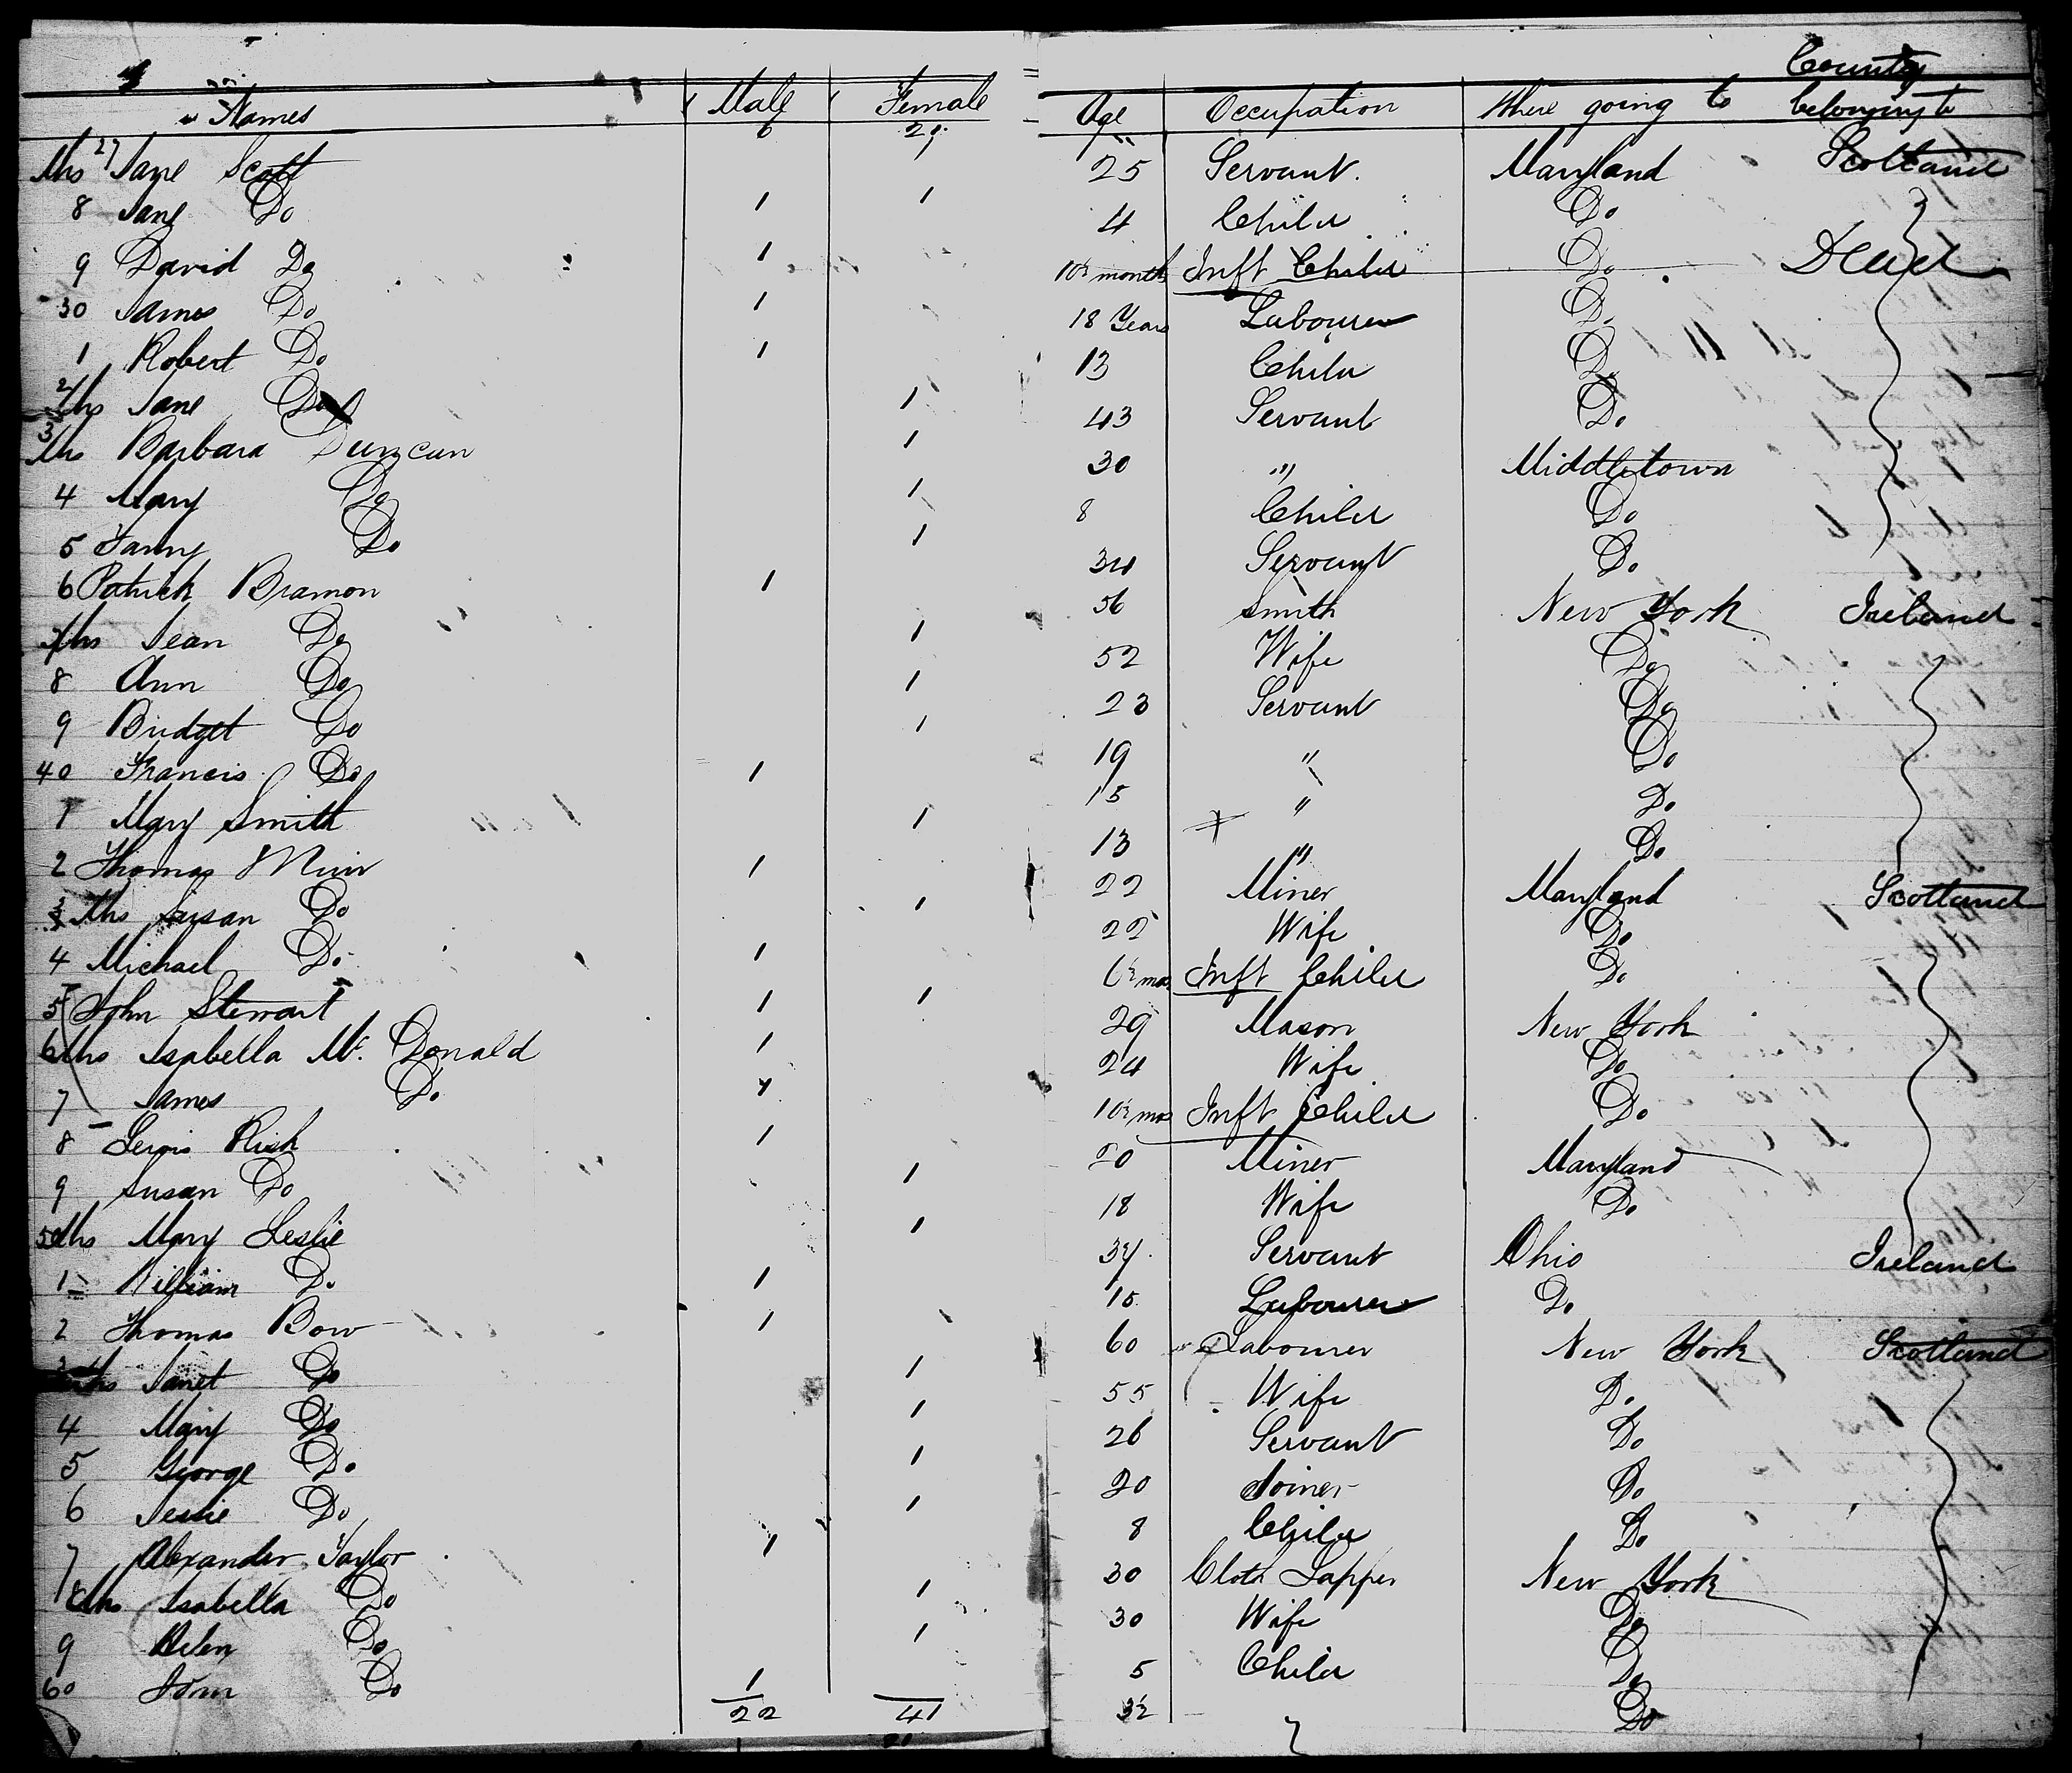 County
Names Male Female Age Occupation Where going to belonging to
6 21
27 Mrs Jane Scott 25 Servant Maryland Scotland
8 Jane Do 1 1 4 Child Do
9 David Do 1 10½ months Inft Child Do Dead
30 James Do 1 18 Years Labourer Do
1 Robert Do 1 13 Child Do
2 Mrs Jane Do 1 43 Servant Do
3 Mrs Barbara Duncan 1 30 " Middletown
4 Mary Do 1 8 Child Do
5 Do 1 34 Servant Do
6 Patrick Bramon 1 56 Smith New York Ireland
7 Mrs Jean Do 1 52 Wife Do
8 Ann Do 1 23 Servant Do
9 Bridget Do 1 19 " Do
40 Francis Do 1 15 " Do
1 Mary Smith 1 13 " Do
2 Thomas Muir 1 22 Miner Maryland Scotland
3 Mrs Susan Do 1 22 Wife Do
4 Michael Do 1 mos Inft Child Do
5 John Stewart 1 1 29 Mason New York
6 Mrs Isabella Mc Donald 1 24 Wife Do
7 James Do 1 10½ mos Inft Child Do
8 Lewis Rick 1 20 Miner Maryland
9 Susan Do 1 18 Wife Do
50 Mrs Mary Leslie 1 34 Servant Ohio Ireland
1 William Do 1 15 Labourer Do
2 Thomas Bow 1 60 Labourer New York Scotland
3 Mrs Janet Do 1 55 Wife Do
4 Mary Do 1 26 Servant Do
5 George Do 1 20 Joiner Do
6 Jessie Do 1 8 Child Do
7 Alexander Taylor 1 30 Cloth Lapper New York
8 Mrs Isabella Do 1 30 Wife Do
9 Helen Do 1 5 Child Do
60 John Do 1 3½ Do
22 41
21